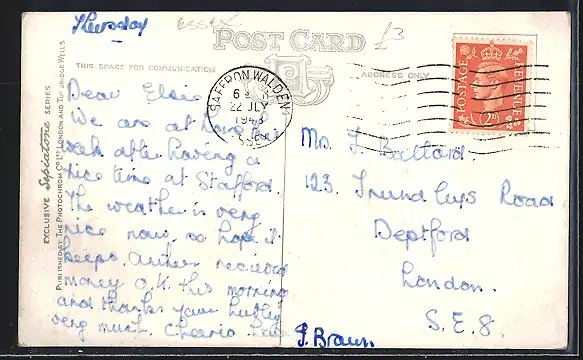 Thursday
ESSEX
POST CARD
£3
THIS SPACE FOR COMMUNICATION
ADDRESS ONLY
EXCLUSIVE Sepiatone SERIES
PUBLISHED BY THE PHOTOCHROM Co LTD LONDON AND TUNBRIDGE WELLS
SAFFRON WALDEN
22 JLY
1943
ESSEX
POSTAGE REVENUE
2D
Dear Elsie
We are at home this
week after having a
nice time at Stafford.
The weather is very
nice now, so hope it
keeps. received
money O.K. this morning
and thanks your hubby
very much. Cheerio
J. Braun
Mrs J. Ballard.
123, Road
Deptford
London.
S.E.8.